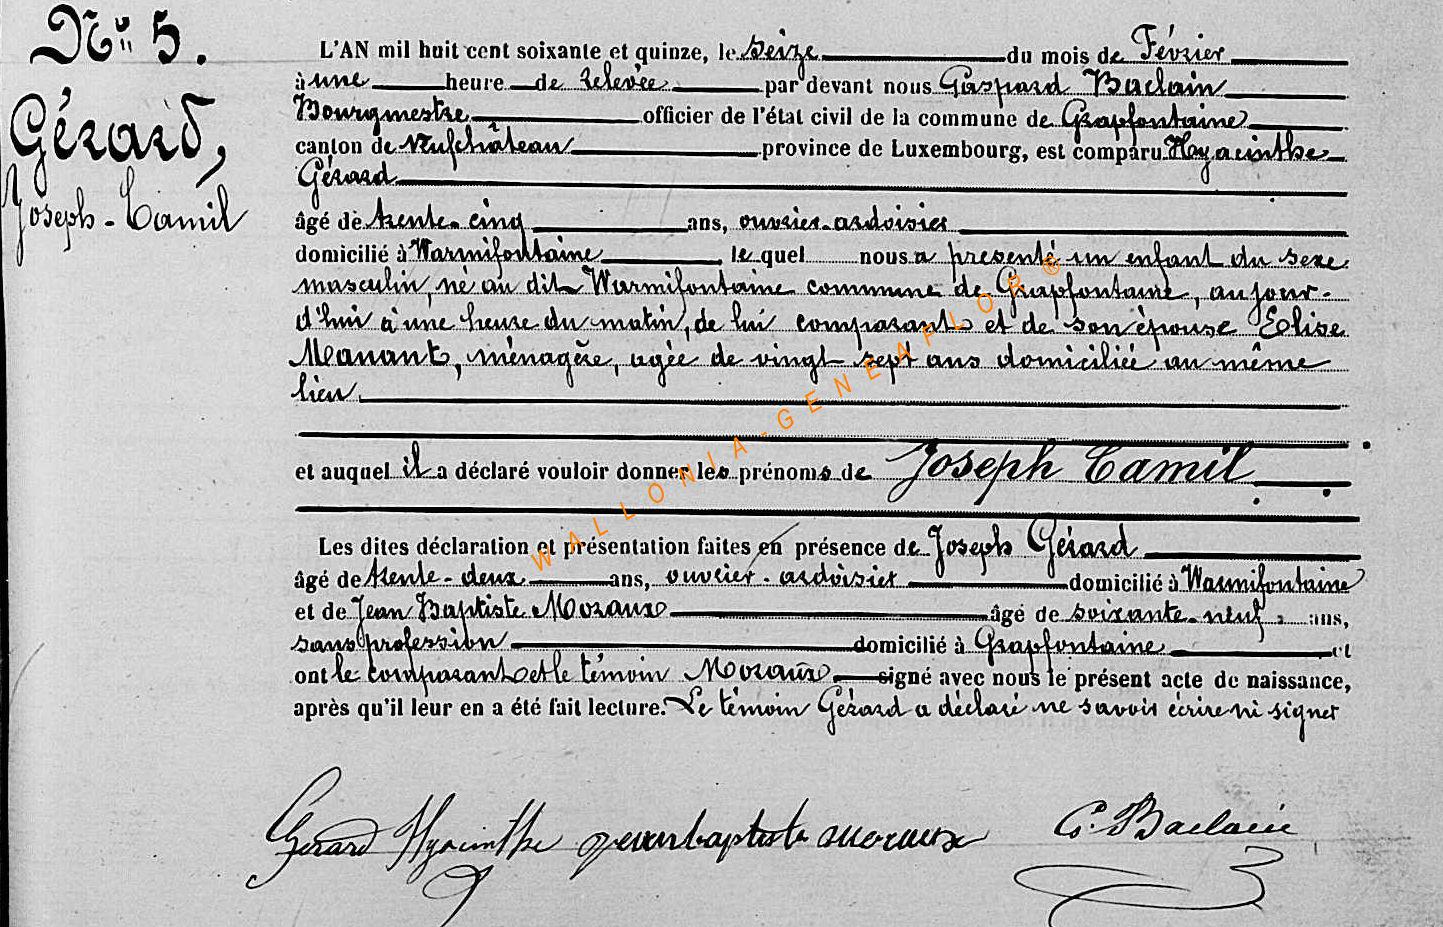 N° 5.
Gérard,
Joseph-Camil
L'AN mil huit cent soixante et quinze, le seize du mois de Février
à une heure de relevée par devant nous Gaspard Baclain
Bourgmestre officier de l'état civil de la commune de Grapfontaine
canton de Neufchâteau province de Luxembourg, est comparu Hyacinthe
Gérard
âgé de trente-cinq ans, ouvrier-ardoisier
domicilié à Warmifontaine le quel nous a presenté un enfant du sexe
masculin, né au dit Warmifontaine commune de Grapfontaine, aujour-
d'hui à une heure du matin, de lui comparant et de son épouse Elise
Manant, ménagère, agée de vingt sept ans domiciliée au même
lieu.
et auquel il a déclaré vouloir donner les prénoms de Joseph Camil
Les dites déclaration et présentation faites en présence de Joseph Gérard
âgé de trente-deux ans, ouvrier-ardoisier domicilié à Warmifontaine
et de Jean Baptiste Moraux âgé de soixante-neuf, ans,
sans profession domicilié à Grapfontaine et
ont le comparant et le témoin Moraux signé avec nous le présent acte de naissance,
après qu'il leur en a été fait lecture. Le témoin Gérard a déclaré ne savoir écrire ni signer
Gerard Hyacinthe jean baptiste moraux G. Baclain
WALLONIA-GENEAFLOR®